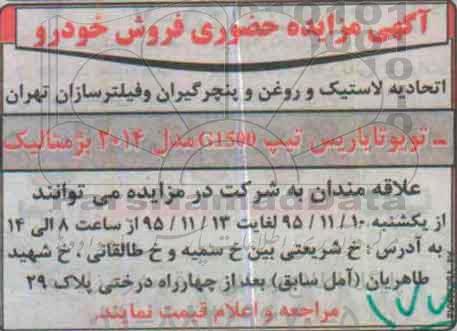 آگهی مزایده حضوری فروش خودرو
اتحادیه لاستیک و روغن و پنچرگیران وفیلترسازان تهران
- تویوتایاریس تیپ G1500 مدل ۲۰۱۴ بژمتالیک
علاقه مندان به شرکت در مزایده می توانند
از یکشنبه ۹۵/۱۱/۱۰ لغایت ۹۵/۱۱/۱۳ از ساعت ۸ الی ۱۴
به آدرس : خ شریعتی بین خ سمیه و خ طالقانی . خ شهید
طاهریان (آمل سابق) بعد از چهارراه درختی پلاک ۲۹
مراجعه و اعلام قیمت نمایند.
۱۷۷